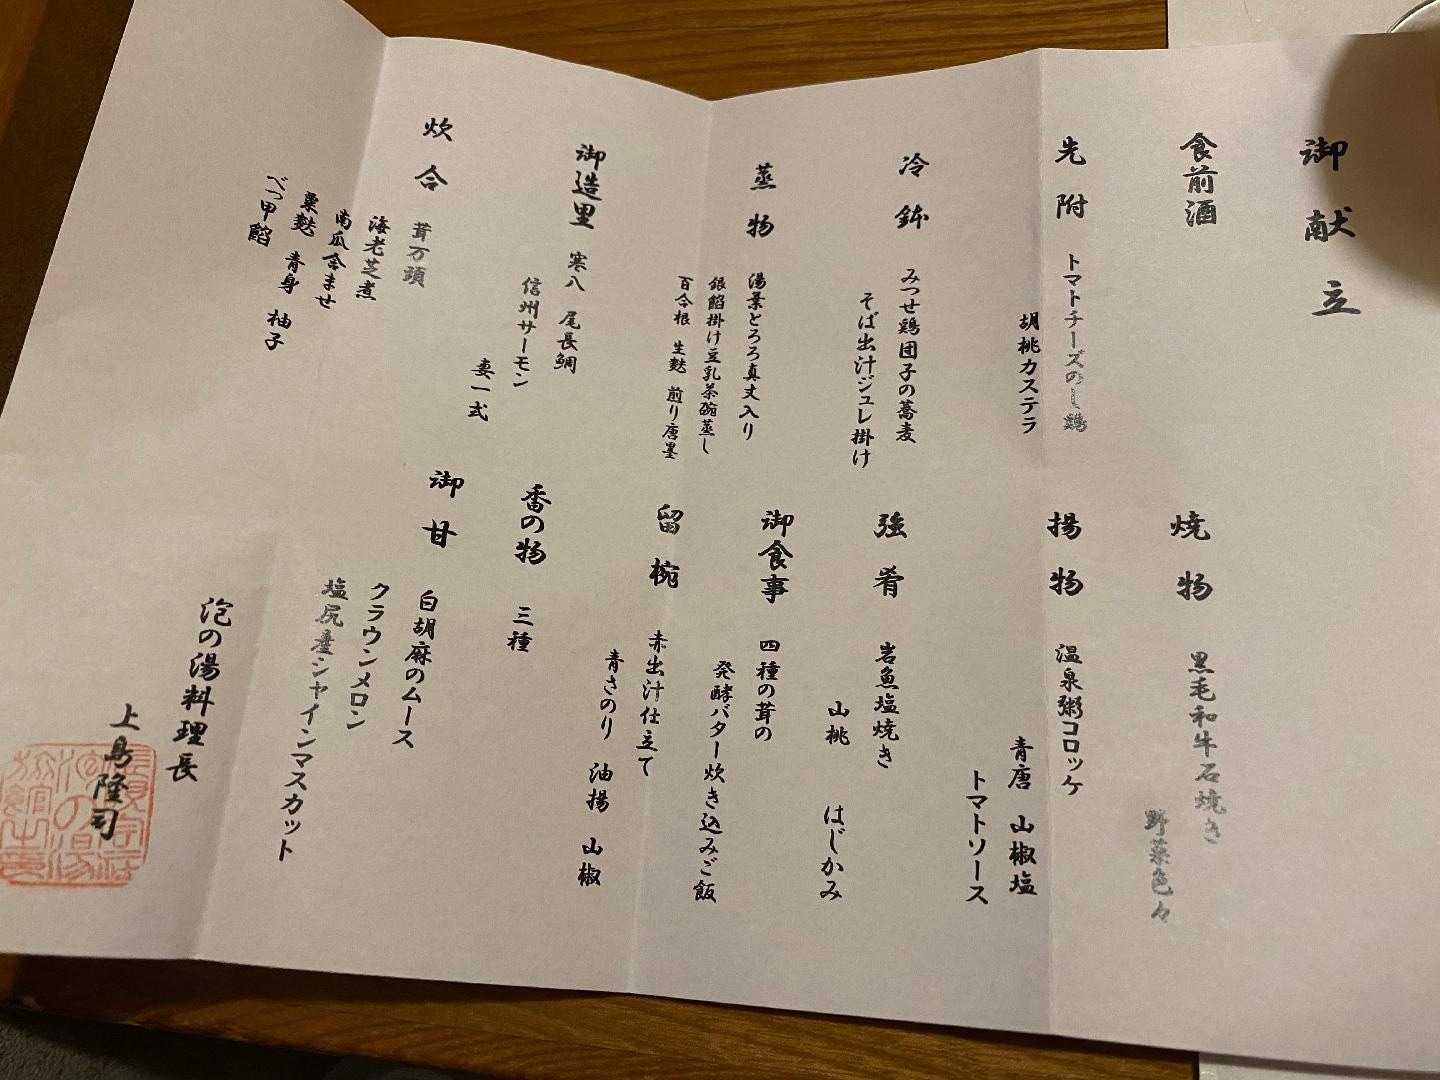 御献立
食前酒
先附 トマトチーズのし鶏
胡桃カステラ
冷鉢 みつせ鶏団子の蕎麦
そば出汁ジュレ掛け
蒸物 湯葉とろろ真丈入り
銀餡掛け豆乳茶碗蒸し
百合根 生麩 煎り唐墨
御造里 寒八 尾長鯛
信州サーモン
妻一式
炊合 茸万頭
海老芝煮
南瓜含ませ
粟麩 青身 柚子
べっ甲餡
焼物 黒毛和牛石焼き
野菜色々
揚物 温泉粥コロッケ
青唐 山椒塩
トマトソース
強肴 岩魚塩焼き
山桃 はじかみ
御食事 四種の茸の
発酵バター炊き込みご飯
留椀 赤出汁仕立て
青さのり 油揚 山椒
香の物 三種
御甘 白胡麻のムース
クラウンメロン
塩尻産シャインマスカット
泡の湯料理長
上島隆司